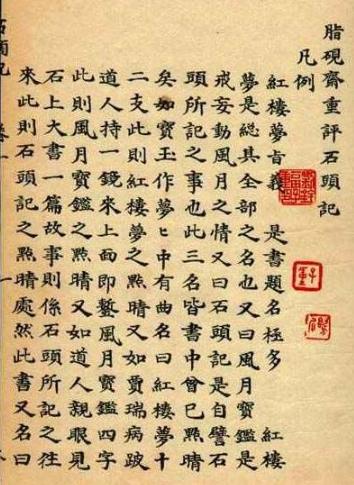 脂硯齋重評石頭記
凡例
紅樓夢旨義 是書題名極多 紅樓
夢是總其全部之名也又曰風月寶鑑是
戒妄動風月之情又曰石頭記是自譬石
頭所記之事也此三名皆書中曾已點睛
矣如寶玉作夢〻中有曲名曰紅樓夢十
二支此則紅樓夢之點睛又如賈瑞病跛
道人持一鏡來上面即鏨風月寶鑑四字
此則風月寶鑑之點睛又如道人親眼見
石上大書一篇故事則係石頭所記之往
來此則石頭記之點睛處然此書又名曰